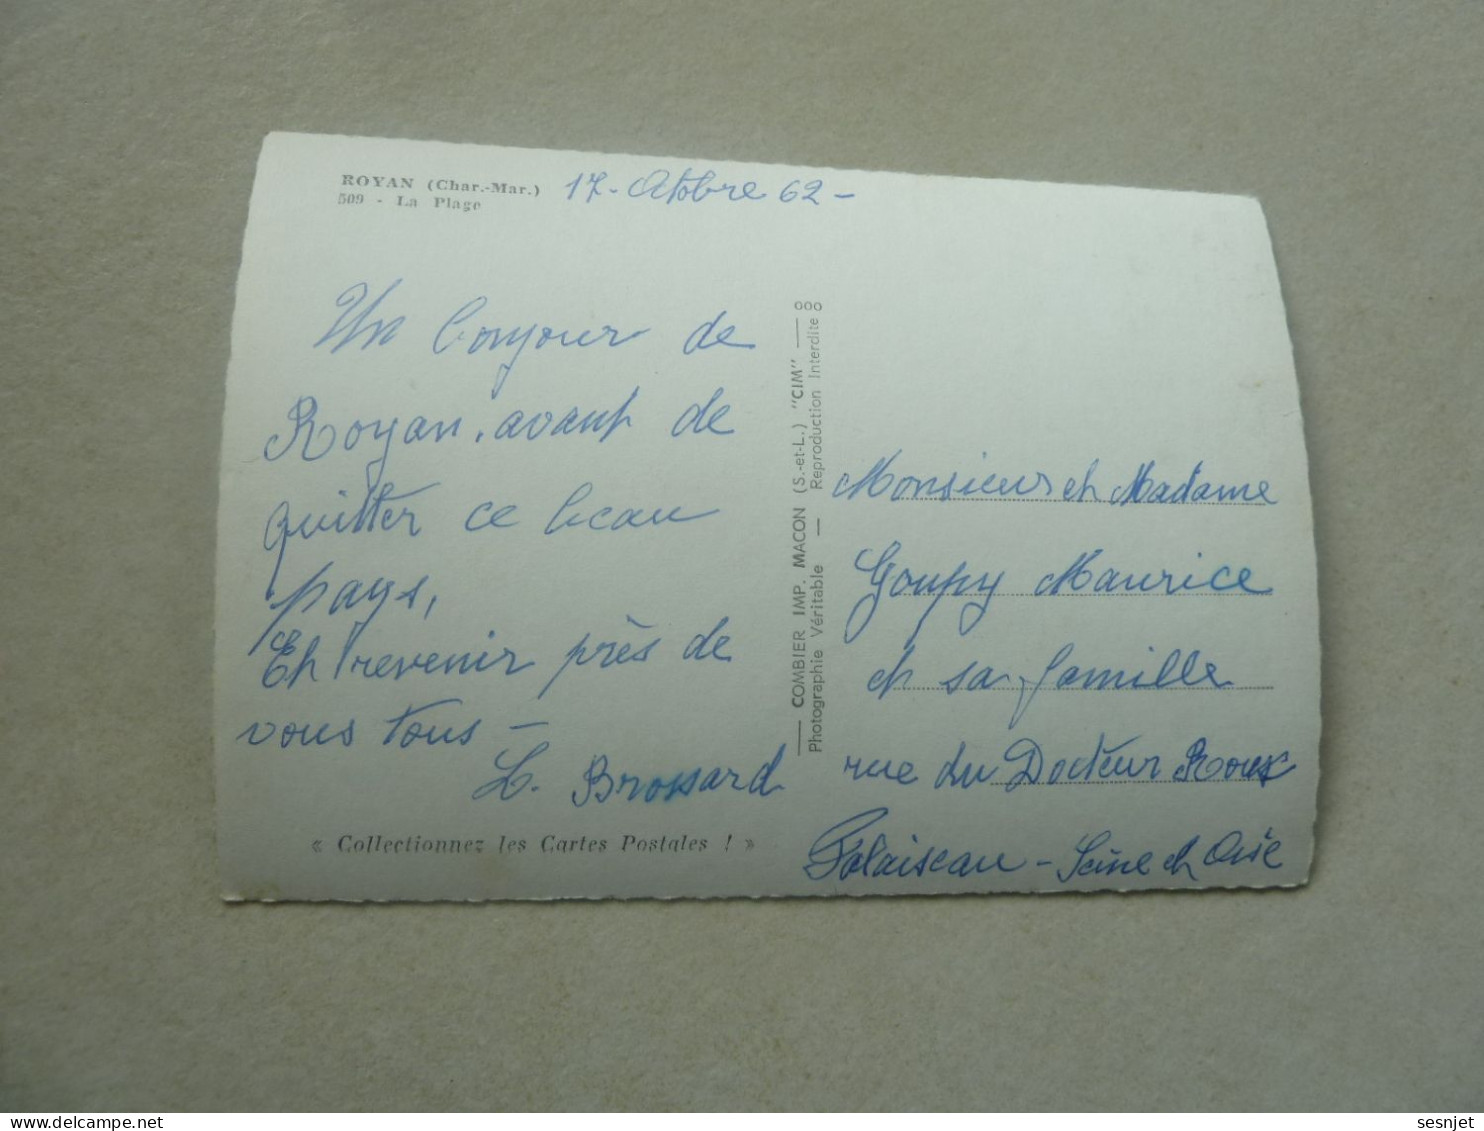 ROYAN (Char.-Mar.)
509 - La Plage
17 - Octobre 62 -
Un bonjour de
Royan, avant de
quitter ce beau
pays,
Et revenir près de
vous tous -
L. Brossard
« Collectionnez les Cartes Postales ! »
COMBIER IMP. MACON (S.-et-L.) "CIM" — ooo
Photographie Véritable — Reproduction Interdite o
Monsieur et Madame
Goupy Maurice
et sa famille
rue du Docteur Roux
Palaiseau - Seine et Oise
sesnjet